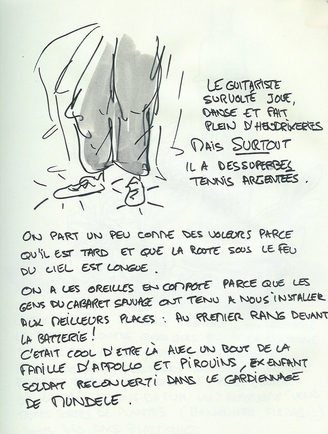 LE GUITARISTE
SURVOLTÉ JOUE,
DANSE ET FAIT
PLEIN D'HENDRIXERIES
MAIS SURTOUT
IL A DES SUPERBES
TENNIS ARGENTÉES.
ON PART UN PEU COMME DES VOLEURS PARCE
QU'IL EST TARD ET QUE LA ROUTE SOUS LE FEU
DU CIEL EST LONGUE.
ON A LES OREILLES EN COMPOTE PARCE QUE LES
GENS DU CABARET SAUVAGE ONT TENU A NOUS INSTALLER
AUX MEILLEURS PLACES : AU PREMIER RANG DEVANT
LA BATTERIE !
C'ETAIT COOL D'ETRE LÀ AVEC UN BOUT DE LA
FAMILLE D'APPOLLO ET PIROUINS, EX ENFANT
SOLDAT RECONVERTI DANS LE GARDIENNAGE
DE MUNDELE.